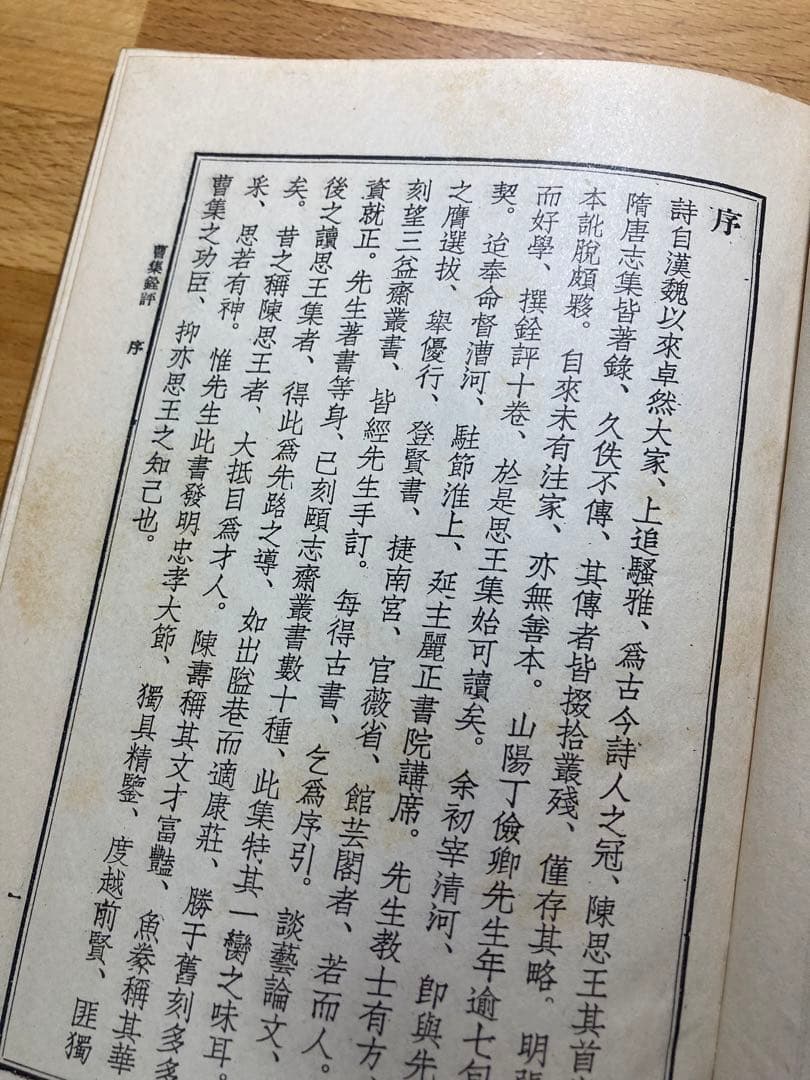 序
詩自漢魏以來卓然大家、上追騷雅、爲古今詩人之冠、陳思王其首
隋唐志集皆著錄、久佚不傳、其傳者皆掇拾叢殘、僅存其略。明張
本訛脫頗夥。自來未有注家、亦無善本。山陽丁儉卿先生年逾七旬
而好學、撰銓評十卷、於是思王集始可讀矣。余初宰清河、卽與先
契。迨奉命督漕河、駐節淮上、延主麗正書院講席。先生教士有方
之膺選拔、舉優行、登賢書、捷南宮、官薇省、館芸閣者、若而人。
刻望三益齋叢書、皆經先生手訂。每得古書、乞爲序引。談藝論文、
資就正。先生著書等身、已刻頤志齋叢書數十種、此集特其一臠之味耳。
後之讀思王集者、得此爲先路之導、如出隘巷而適康莊、勝于舊刻多多
矣。昔之稱陳思王者、大抵目爲才人。陳壽稱其文才富豔、魚豢稱其華
采、思若有神。惟先生此書發明忠孝大節、獨具精鑒、度越前賢、匪獨
曹集之功臣、抑亦思王之知己也。
曹集銓評 序
一